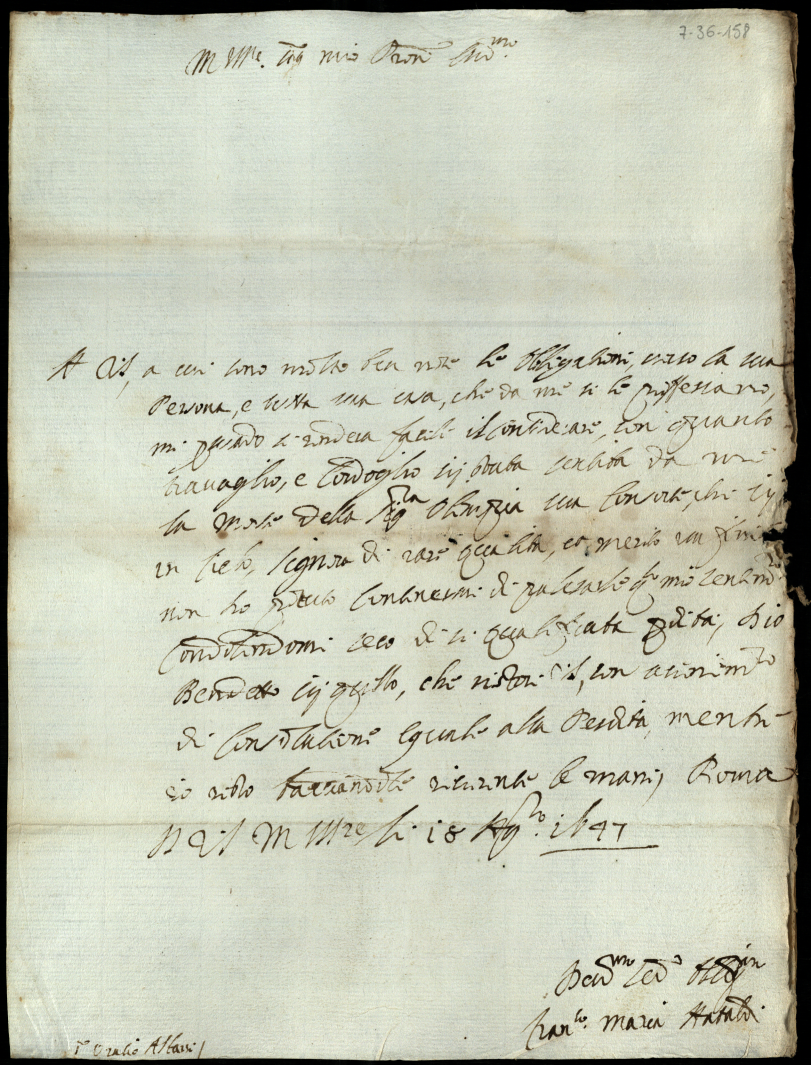 7-36-158
M Ill.re Sig mio Pron Oss.mo
A V.S. a cui sono molto ben note le obligationi, verso la sua
Persona, e tutta sua casa, che da me si le professano,
mi persuado si renderà facile il considerare, con quanto
travaglio, e cordoglio sij stata sentita da me
la morte della Sig.ra Olimpia sua Consorte, che sij
in Cielo, Signora di rare qualità, et merito
non ho potuto contenermi di
Condolendomi seco di si qualificata pdita, Dio
Benedetto sij quello, che ristori V.S. con
di consolatione eguale alla Perdita, mentre
io resto bacciandole riverente le mani, Roma
D V.S. M Ill.re li 18 Ag.to 1647
Dev.mo Ser.
Fran.co Maria
S.r Oratio Albani